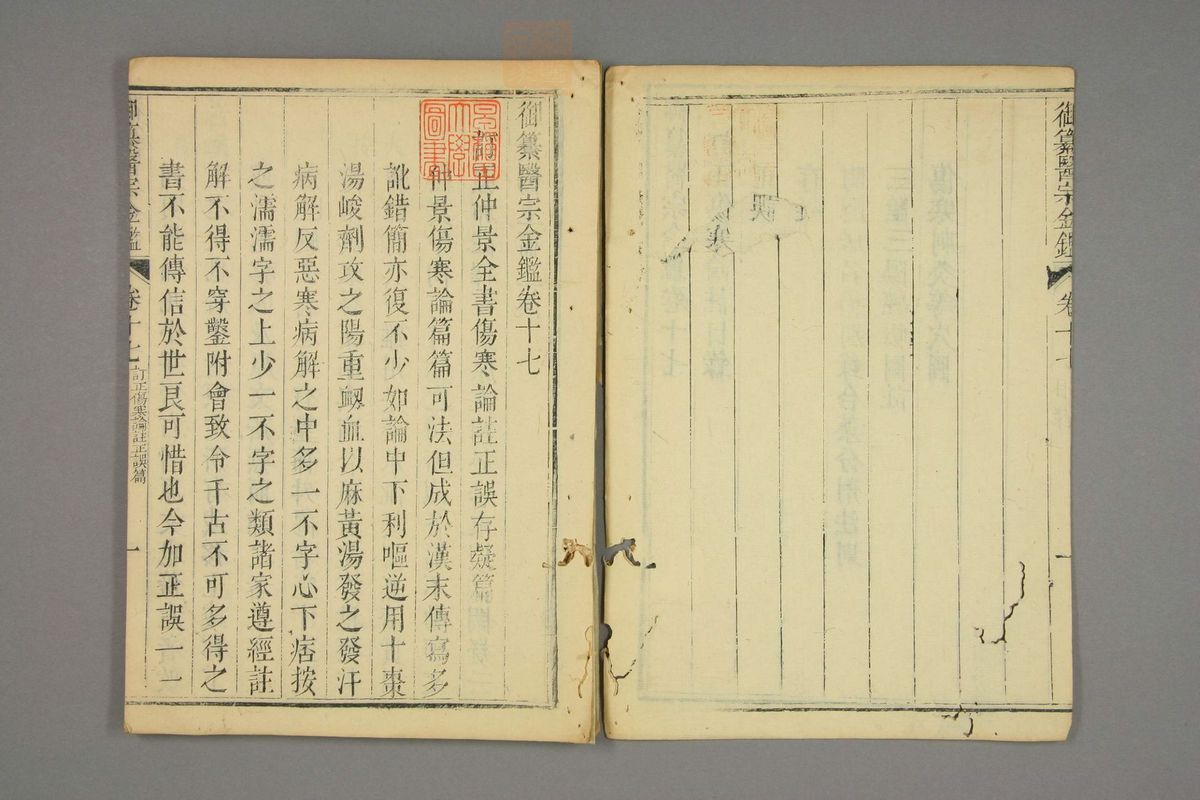 御纂醫宗金鑑 卷十七
一
御纂醫宗金鑑卷十七
訂正仲景全書傷寒論註正誤存疑篇
仲景傷寒論篇篇可法但成於漢末傳寫多
訛錯簡亦復不少如論中下利嘔逆用十棗
湯峻劑攻之陽重衂血以麻黃湯發之發汗
病解反惡寒病解之中多一不字心下痞按
之濡濡字之上少一不字之類諸家遵經註
解不得不穿鑿附會致令千古不可多得之
書不能傳信於世良可惜也今加正誤一一
御纂醫宗金鑑 卷十七 訂正傷寒論註正誤篇 一